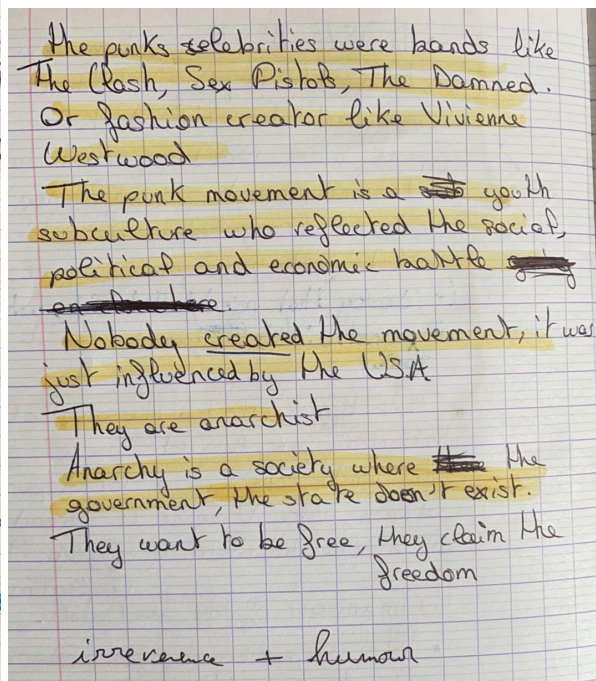 the punks celebrities were bands like
The Clash, Sex Pistols, The Damned.
Or fashion creator like Vivienne
Westwood
The punk movement is a youth
subculture who reflected the social,
political and economic battle
Nobody created the movement, it was
just influenced by the USA
They are anarchist
Anarchy is a society where the
government, the state doesn't exist.
They want to be free, they claim the
freedom
irreverence + humour